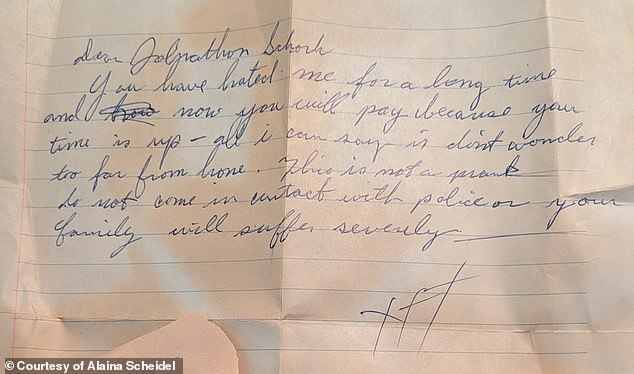 Dear Johnathon Schork
You have hated me for a long time
and now you will pay because your
time is up - all i can say is don't wonder
too far from home. This is not a prank
do not come in contact with police or your
family will suffer severly
© Courtesy of Alaina Scheidel